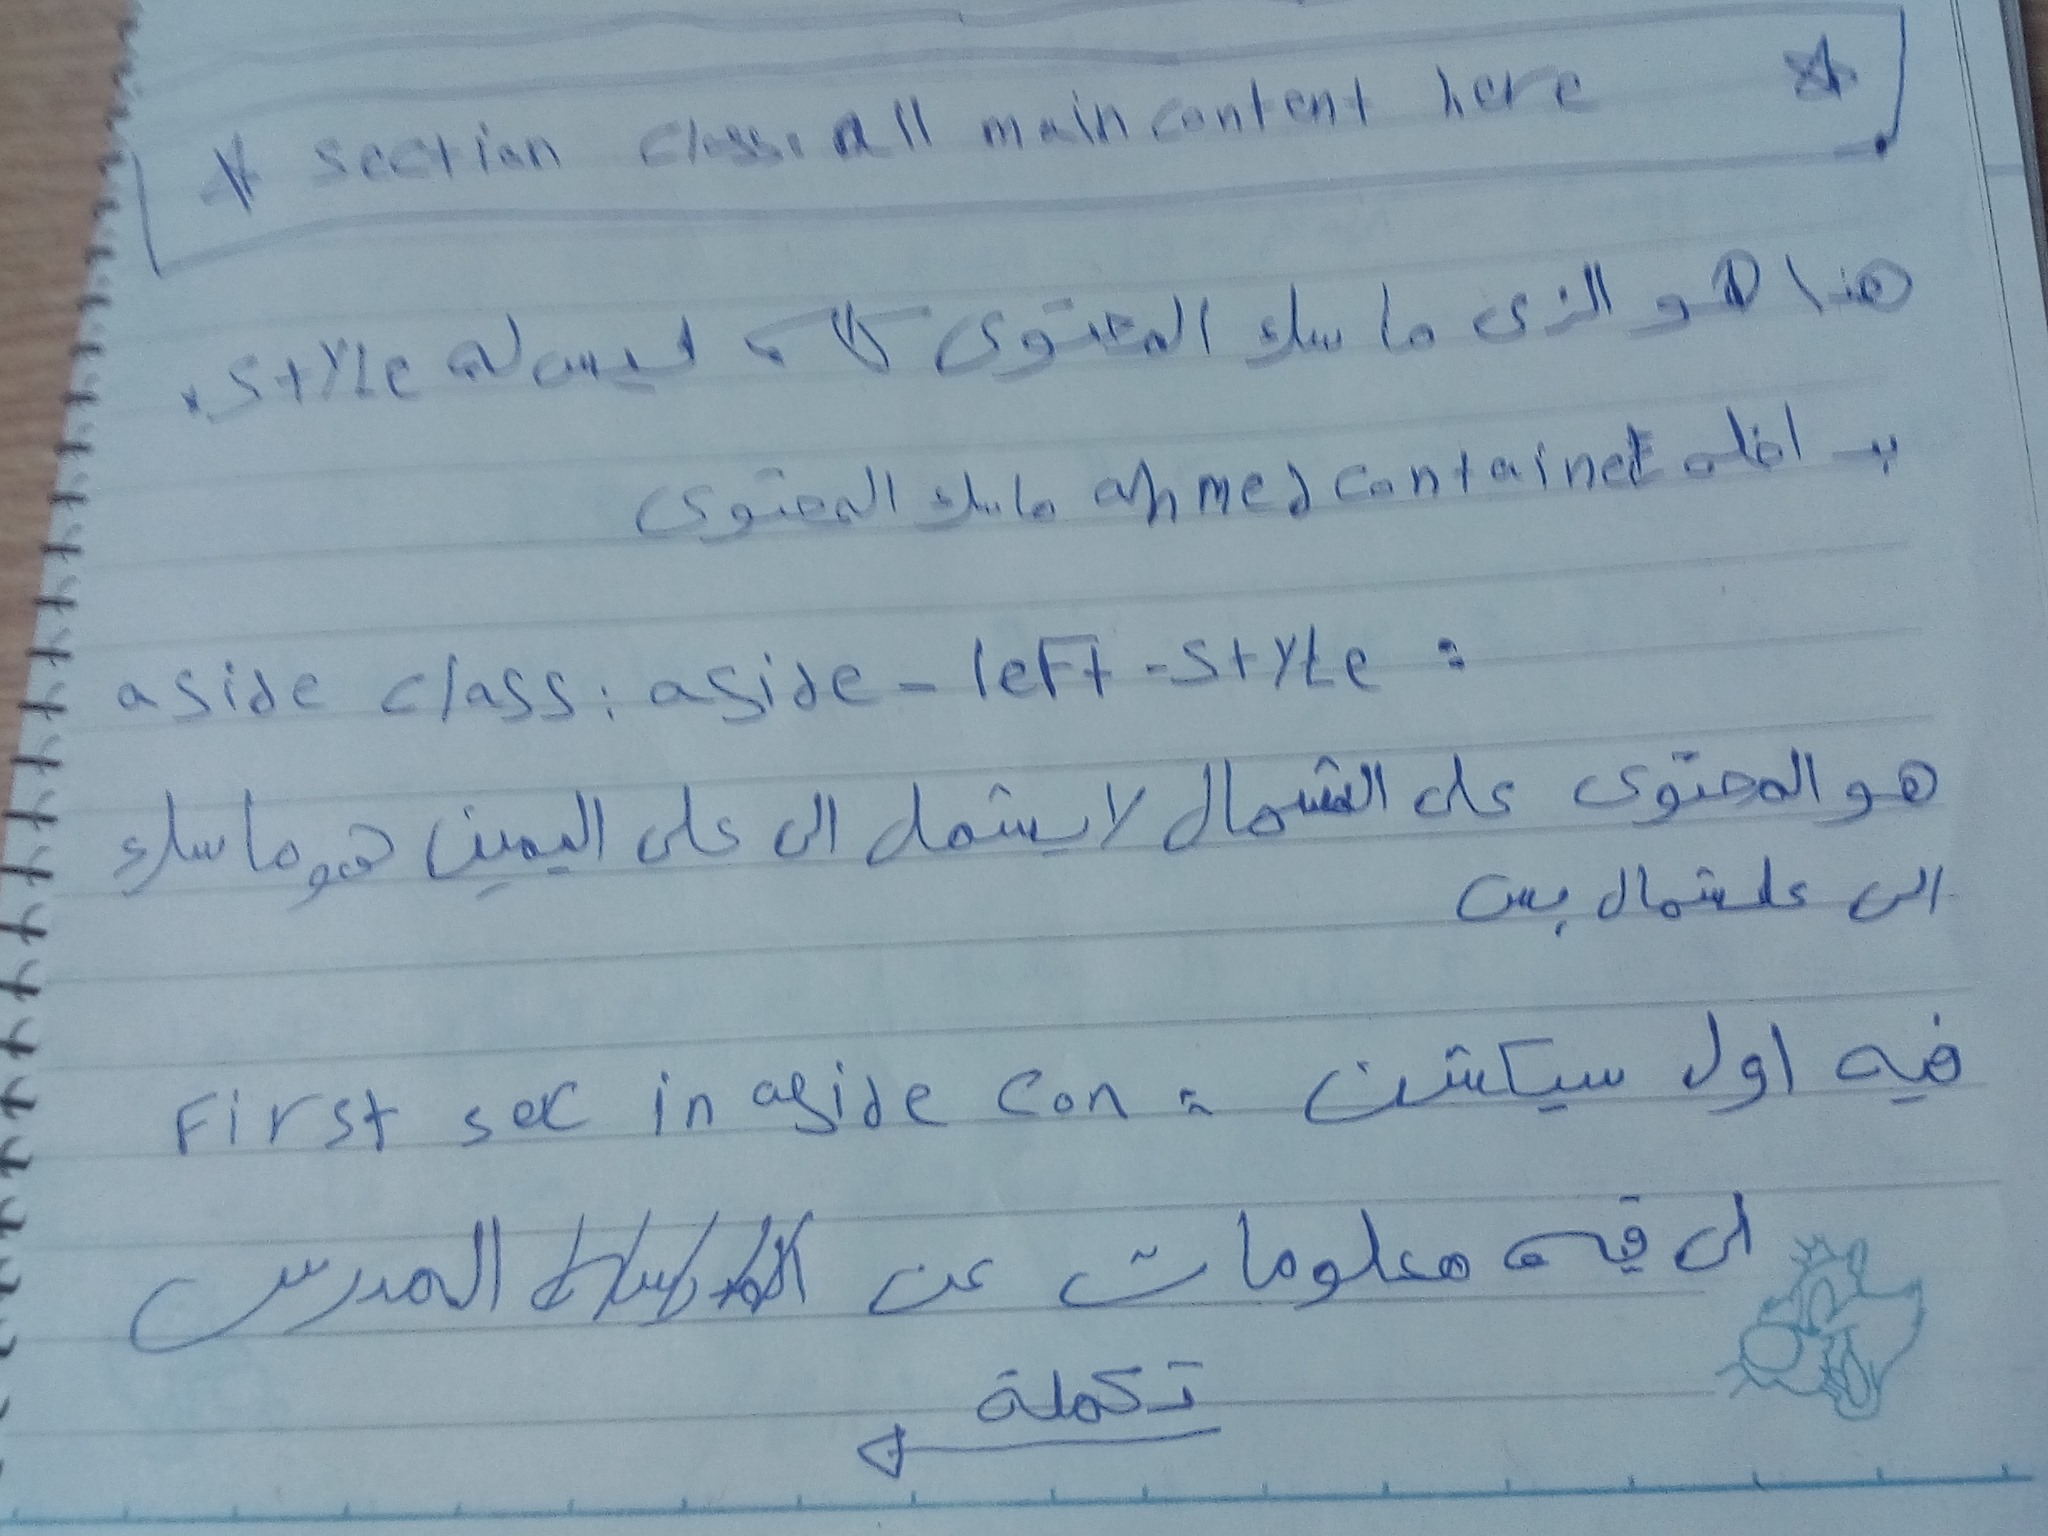 * section class: all main content here *
هذا هو الذى ماسك المحتوى كله ليس له style.
بداخله ahmed container ماسك المحتوى
aside class: aside-left-style:
هو المحتوى على الشمال لا يشمل الى على اليمين هو ماسك
الى علشمال بس
فيه اول سيكشن : First sec in aside con
الى فيه معلومات عن المدرس
تكملة